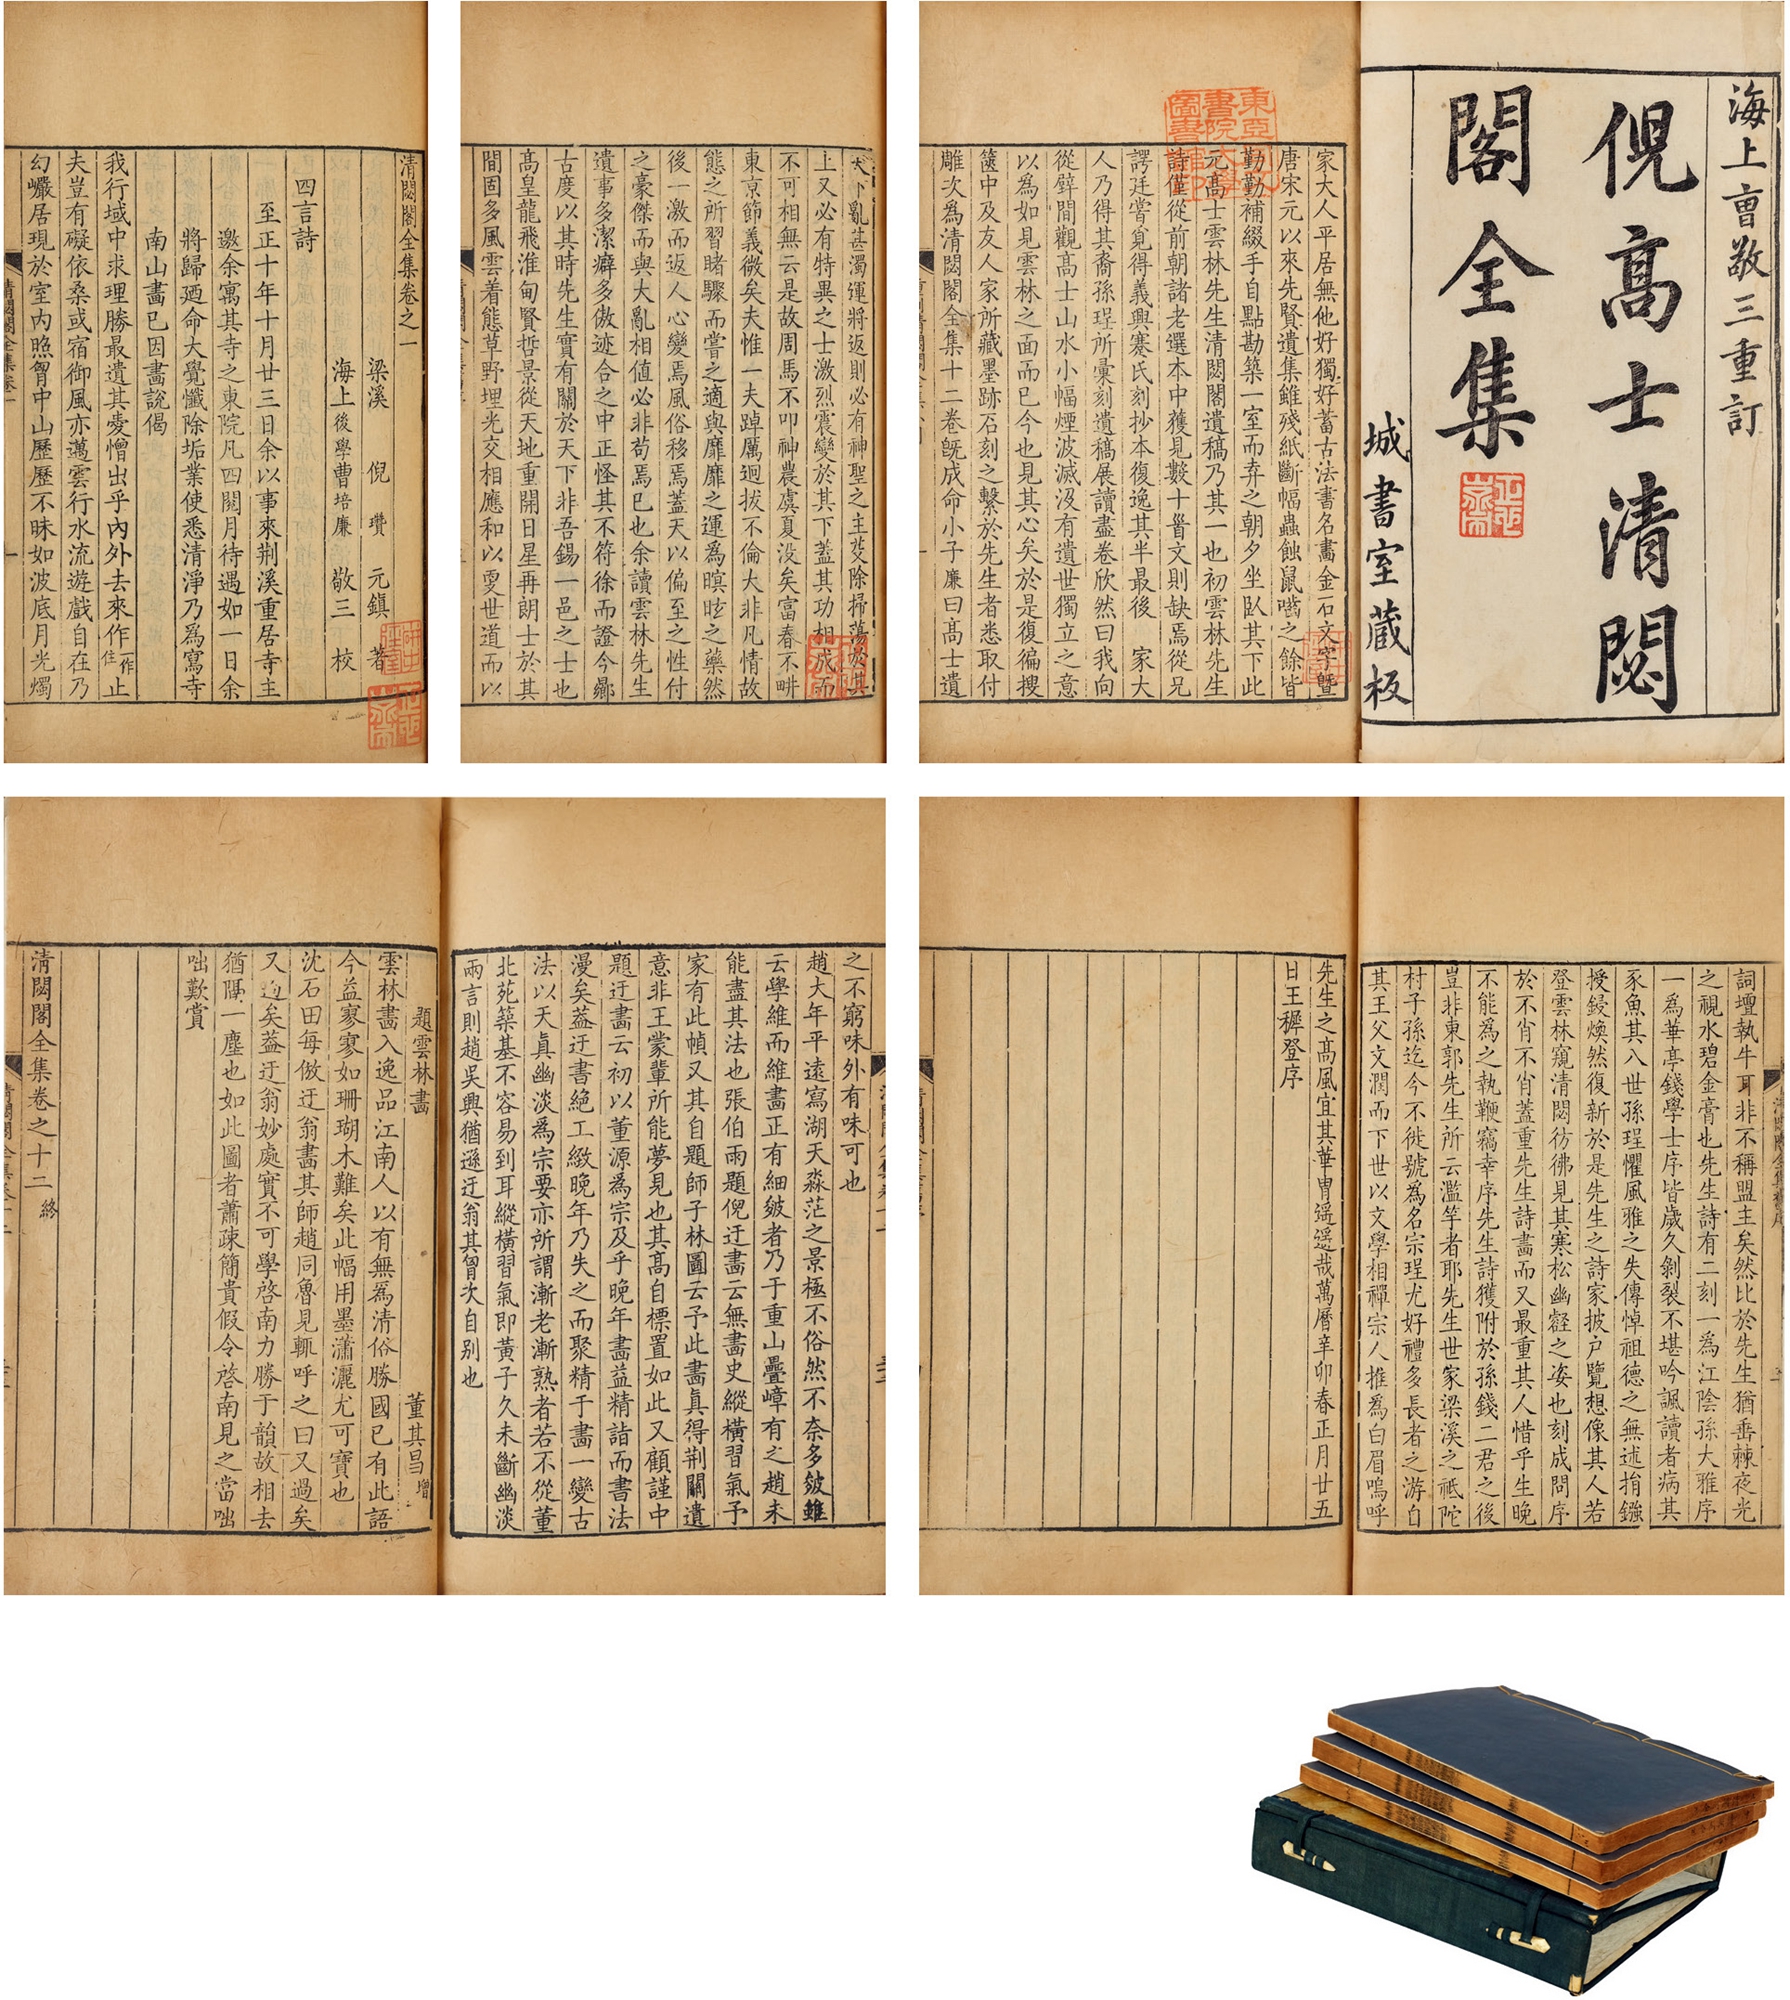 海上曹敬三重訂
倪高士清閟
閣全集
城書室藏板
家大人平居無他好獨好蓄古法書名畫金石文字曁
唐宋元以來先賢遺集雖殘紙斷幅蟲蝕鼠嚙之餘皆
勤勤補綴手自點勘築一室而弆之朝夕坐臥其下此
元高士雲林先生清閟閣遺稿乃其一也初雲林先生
詩僅從前朝諸老選本中獲見數十首文則缺焉從兄
諤廷嘗覓得義興蹇氏刻抄本復逸其半最後　家大
人乃得其裔孫珵所彙刻遺稿展讀盡卷欣然曰我向
從壁間觀高士山水小幅煙波滅沒有遺世獨立之意
以為如見雲林之面而已今也見其心矣於是復徧搜
篋中及友人家所藏墨跡石刻之繫於先生者悉取付
雕次為清閟閣全集十二卷旣成命小子廉曰高士遺
天下亂甚濁運將返則必有神聖之主芟除掃蕩於其
上又必有特異之士激烈震變於其下蓋其功相成而
不可相無云是故周馬不叩神農虞夏没矣富春不畊
東京節義微矣夫惟一夫踔厲迥拔不倫大非凡情故
態之所習睹驟而嘗之適與靡靡之運為瞑眩之藥然
後一激而返人心變焉風俗移焉蓋天以偏至之性付
之豪傑而與大亂相值必非苟焉已也余讀雲林先生
遺事多潔癖多傲迹合之中正怪其不符徐而證今鄉
古度以其時先生實有關於天下非吾錫一邑之士也
高皇龍飛淮甸賢哲景從天地重開日星再朗士於其
間固多風雲着態草野埋光交相應和以更世道而以
清閟閣全集卷之一
梁溪　倪瓚　元鎮　著
海上後學曹培廉　敬三　校
四言詩
至正十年十月廿三日余以事來荆溪重居寺主
邀余寓其寺之東院凡四閱月待遇如一日余
將歸廼命大覺懺除垢業使悉清淨乃為寫寺
南山畫已因畫說偈
我行域中求理勝最遺其愛憎出乎內外去來作一作住止
夫豈有礙依桑或宿御風亦邁雲行水流遊戲自在乃
幻巖居現於室內照胷中山歷歷不昧如波底月光燭
詞壇執牛耳非不稱盟主矣然比於先生猶垂棘夜光
之視水碧金膏也先生詩有二刻一為江陰孫大雅序
一為華亭錢學士序皆歲久剝裂不堪吟諷讀者病其
豕魚其八世孫珵懼風雅之失傳悼祖德之無述捐鏹
授鋟煥然復新於是先生之詩家披戶覽想像其人若
登雲林窺清閟彷彿見其寒松幽壑之姿也刻成問序
於不肖不肖蓋重先生詩畫而又最重其人惜乎生晚
不能為之執鞭竊幸序先生詩獲附於孫錢二君之後
豈非東郭先生所云濫竽者耶先生世家梁溪之祇陀
村子孫迄今不徙號為名宗珵尤好禮多長者之游自
其王父文潤而下世以文學相禪宗人推為白眉嗚呼
先生之高風宜其華胄遥遥哉萬曆辛卯春正月廿五
日王穉登序
之不窮味外有味可也
趙大年平遠寫湖天淼茫之景極不俗然不奈多皴雖
云學維而維畫正有細皴者乃于重山疊嶂有之趙未
能盡其法也張伯雨題倪迂畫云無畫史縱橫習氣予
家有此幀又其自題師子林圖云予此畫真得荆關遺
意非王蒙輩所能夢見也其高自標置如此又顧謹中
題迂畫云初以董源為宗及乎晚年畫益精詣而書法
漫矣葢迂書絕工緻晚年乃失之而聚精于畫一變古
法以天真幽淡為宗要亦所謂漸老漸熟者若不從董
北苑築基不容易到耳縱橫習氣即黃子久未斷幽淡
兩言則趙吳興猶遜迂翁其胷次自別也
題雲林畫　董其昌　增
雲林畫入逸品江南人以有無爲清俗勝國已有此語
今益寥寥如珊瑚木難矣此幅用墨瀟灑尤可寶也
沈石田每倣迂翁畫其師趙同魯見輒呼之曰又過矣
又過矣葢迂翁妙處實不可學啓南力勝于韻故相去
猶隔一塵也如此圖者蕭疎簡貴假令啓南見之當咄
咄歎賞
清閟閣全集卷之十二　終